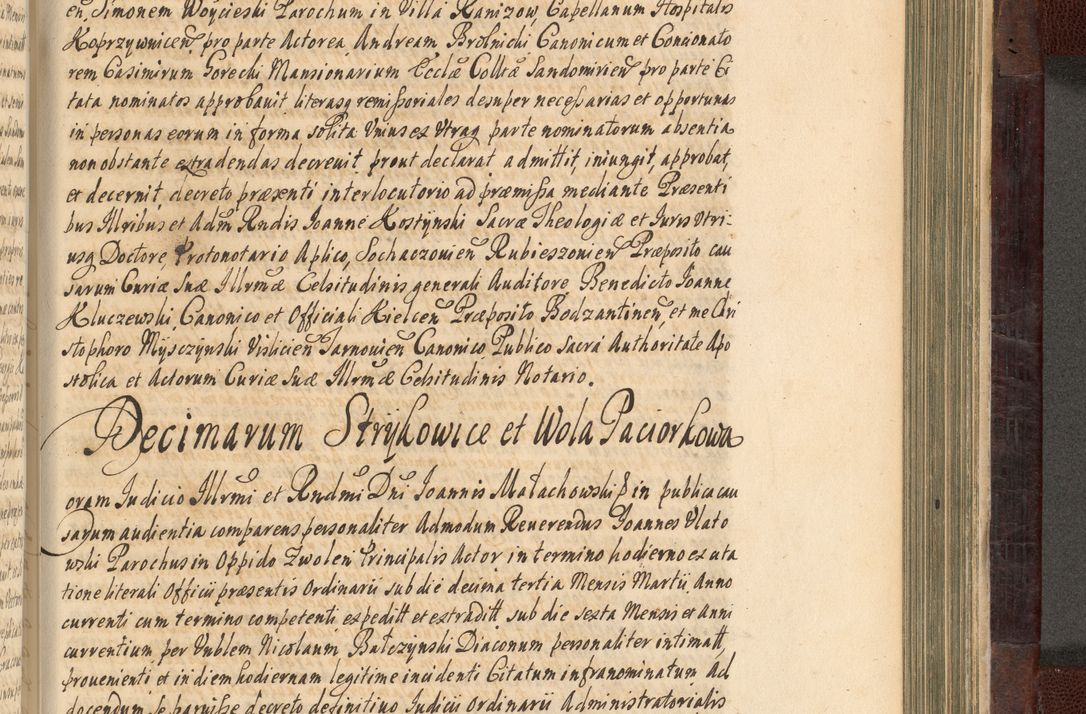 en, Simonem Woycieski Parochum in Villa Ranizow, Capellanum Hospitalis
Koprzywnicen, pro parte Actorea, Andream Brolnicki Canonicum et Concionato
rem Casimirum Gorecki Mansionarium Ecclæ Colltæ Sandomirien pro parte Ci
tata nominatos approbauit literasq remissoriales desuper necessarias et opportunas
in personas eorum in forma solita Vnius ex Vtraq parte nominatorum absentia
non obstante extradendas decreuit, prout declarat admittit, iniungit, approbat,
et decernit, decreto præsenti interlocutorio ad præmissa mediante Præsenti
bus Illribus et Adm Rndis Ioanne Kostynski Sacræ Theologiæ et Iuris Vtri:
usq Doctore, Protonotario Aplico, Sochaczouien Rubieszouien Præposito cau
sarum Curiæ Suæ Illrmæ Celsitudinis generali Auditore Benedicto Ioanne
Kluczewski, Canonico et Officiali Kielcen Præposito Bodzantinen, et me Chri
stophoro Mysczynski Vislicien Tarnouien Canonico, Publico Sacra Authoritate Apo
stolica et Actorum Curiæ Suæ Illrmæ Celsitudinis Notario.
Decimarum Strykowice et Wola Paciorkowa
oram Iudicio Illrmi et Rndmi Dni Ioannis Małachowski in publica cau
sarum audientia comparens personaliter Admodum Reuerendus Ioannes Vlato
wski Parochus in Oppido Zwolen Principalis Actor in termino hodierno ex cita
tione literali Officii præsentis Ordinarii sub die decima tertia Mensis Martii Anno
currenti cum termino competenti expeditt et extraditt, sub die sexta Mensis et Anni
currentium per Vnblem Nicolaum Bałczynski Diaconum personaliter intimatt,
prouenienti et in diem hodiernam legitime incidenti Citatum infranominatum Ad
docendum se paruisse decreto definitiuo Iudicii Ordinarii Administratorialis